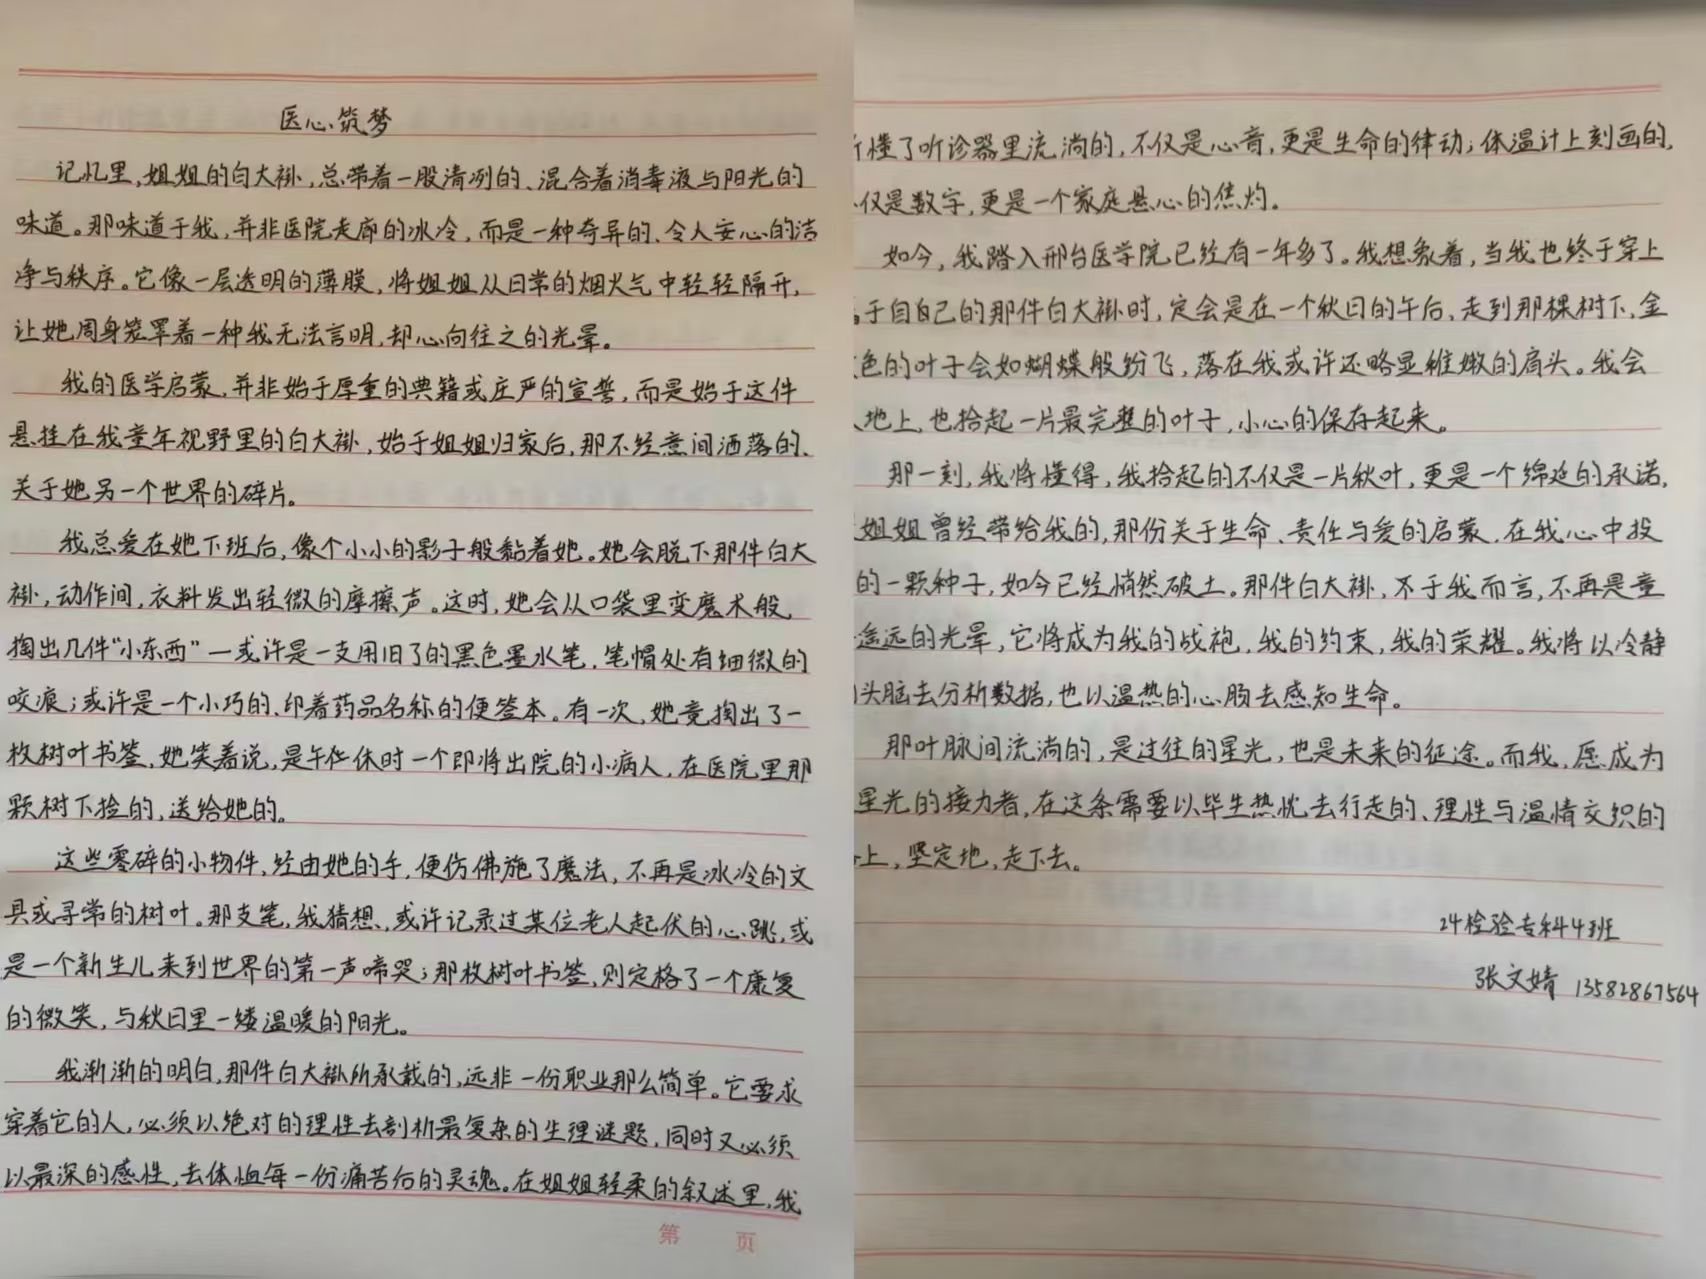 医心筑梦
记忆里,姐姐的白大褂,总带着一股清冽的、混合着消毒液与阳光的
味道。那味道于我,并非医院走廊的冰冷,而是一种奇异的、令人安心的洁
净与秩序。它像一层透明的薄膜,将姐姐从日常的烟火气中轻轻隔开,
让她周身笼罩着一种我无法言明,却心向往之的光晕。
我的医学启蒙,并非始于厚重的典籍或庄严的宣誓,而是始于这件
悬挂在我童年视野里的白大褂,始于姐姐归家后,那不经意间洒落的、
关于她另一个世界的碎片。
我总爱在她下班后,像个小小的影子般黏着她。她会脱下那件白大
褂,动作间,衣料发出轻微的摩擦声。这时,她会从口袋里变魔术般,
掏出几件“小东西”—或许是一支用旧了的黑色墨水笔,笔帽处有细微的
咬痕;或许是一个小巧的、印着药品名称的便签本。有一次,她竟掏出了一
枚树叶书签,她笑着说,是午休时一个即将出院的小病人,在医院里那
颗树下捡的,送给她的。
这些零碎的小物件,经由她的手,便仿佛施了魔法,不再是冰冷的文
具或寻常的树叶。那支笔,我猜想,或许记录过某位老人起伏的心跳,或
是一个新生儿来到世界的第一声啼哭;那枚树叶书签,则定格了一个康复
的微笑,与秋日里一缕温暖的阳光。
我渐渐的明白,那件白大褂所承载的,远非一份职业那么简单。它要求
穿着它的人,必须以绝对的理性去剖析最复杂的生理谜题,同时又必须
以最深的感性,去体恤每一份痛苦后的灵魂。在姐姐轻柔的叙述里,我
第 页
懂了听诊器里流淌的,不仅是心音,更是生命的律动;体温计上刻画的,
仅是数字,更是一个家庭悬心的焦灼。
如今,我踏入邢台医学院已经有一年多了。我想象着,当我也终于穿上
于自自己的那件白大褂时,定会是在一个秋日的午后,走到那棵树下,金
色的叶子会如蝴蝶般纷飞,落在我或许还略显稚嫩的肩头。我会
地上,也拾起一片最完整的叶子,小心的保存起来。
那一刻,我将懂得,我拾起的不仅是一片秋叶,更是一个绵延的承诺,
姐姐曾经带给我的,那份关于生命、责任与爱的启蒙,在我心中投
的一颗种子,如今已经悄然破土。那件白大褂,不于我而言,不再是童
遥远的光晕,它将成为我的战袍,我的约束,我的荣耀。我将以冷静
头脑去分析数据,也以温热的心肠去感知生命。
那叶脉间流淌的,是过往的星光,也是未来的征途。而我,愿成为
星光的接力者,在这条需要以毕生热忱去行走的、理性与温情交织的
上,坚定地,走下去。
24检验专科4班
张文婧 13582867564